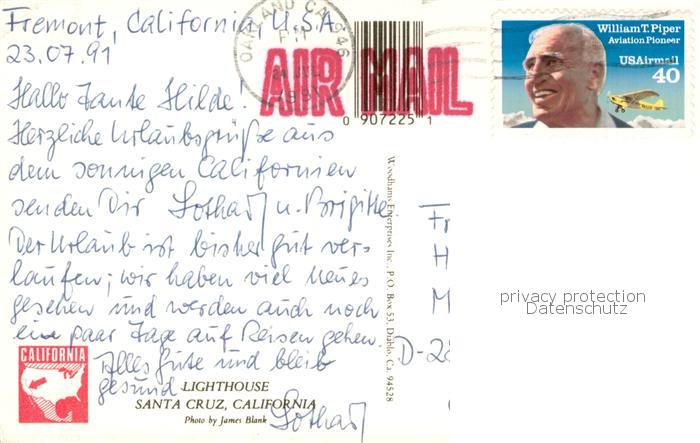 Fremont, California, U.S.A
23.07.91
Hallo Tante Hilde!
Herzliche Urlaubsgrüße aus
dem sonnigen Californien
senden Dir Lothar u. Brigitte.
Der Urlaub ist bisher gut ver-
laufen; wir haben viel neues
gesehen und werden auch noch
ein paar Tage auf Reisen gehen.
Alles Gute und bleib
gesund
Lothar
CALIFORNIA
LIGHTHOUSE
SANTA CRUZ, CALIFORNIA
Photo by James Blank
Woodhams Enterprises Inc., P.O. Box 53, Diablo, Ca. 94528
OAKLAND CA 946
PM
24 JUL
1991
AIR MAIL
0 907225 1
William T. Piper
Aviation Pioneer
USAirmail
40
Fr
H
M
D-28
privacy protection
Datenschutz